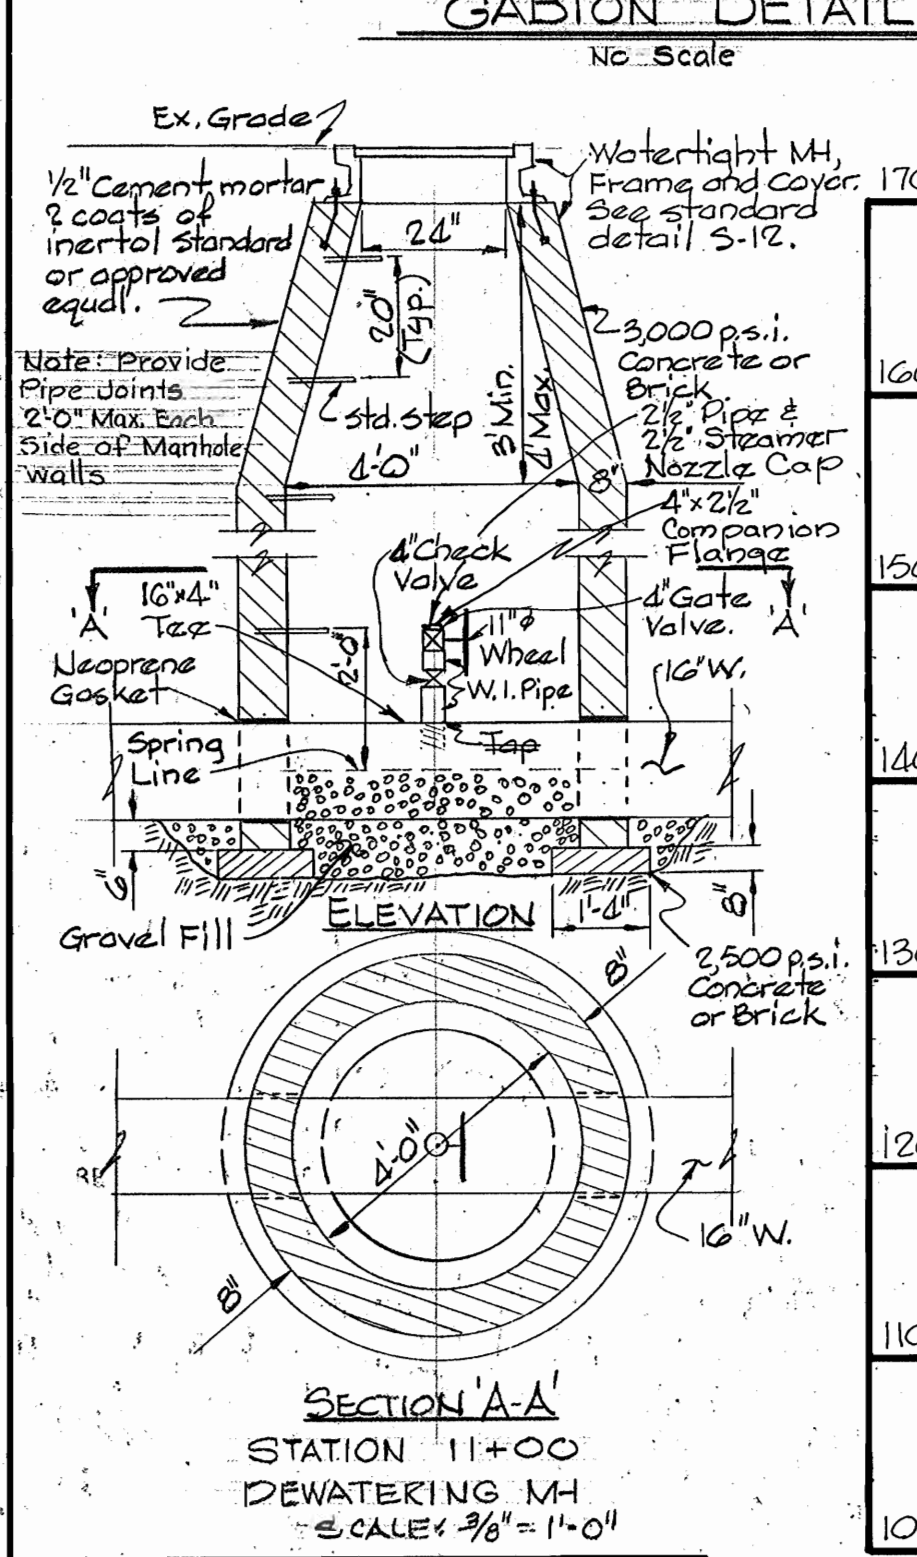 GABION DETAIL
No Scale
Ex. Grade
1/2" Cement mortar
2 coats of
inertol standard
or approved
equal.
Watertight MH,
Frame and Cover.
See standard
detail S-12.
24"
20"
(Typ.)
3' Min.
4' Max.
3,000 p.s.i.
Concrete or
Brick
Note: Provide
Pipe Joints
2'-0" Max. Each
Side of Manhole
Walls
std. step
4'-0"
8"
2½" Pipe &
2½" Steamer
Nozzle Cap
4" x 2½"
Companion
Flange
4" Check
Valve
'A'
'A'
16"x4"
Tee
4" Gate
Valve.
11"ø
Wheel
2'-0"
W.I. Pipe
Neoprene
Gasket
16" W.
Tap
Spring
Line
6"
8"
1'-4"
Gravel Fill
ELEVATION
2,500 p.s.i.
Concrete
or Brick
8"
4'-0"
16" W.
8"
SECTION 'A-A'
STATION 11+00
DEWATERING MH
SCALE: 3/8" = 1'-0"
170
160
150
140
130
120
110